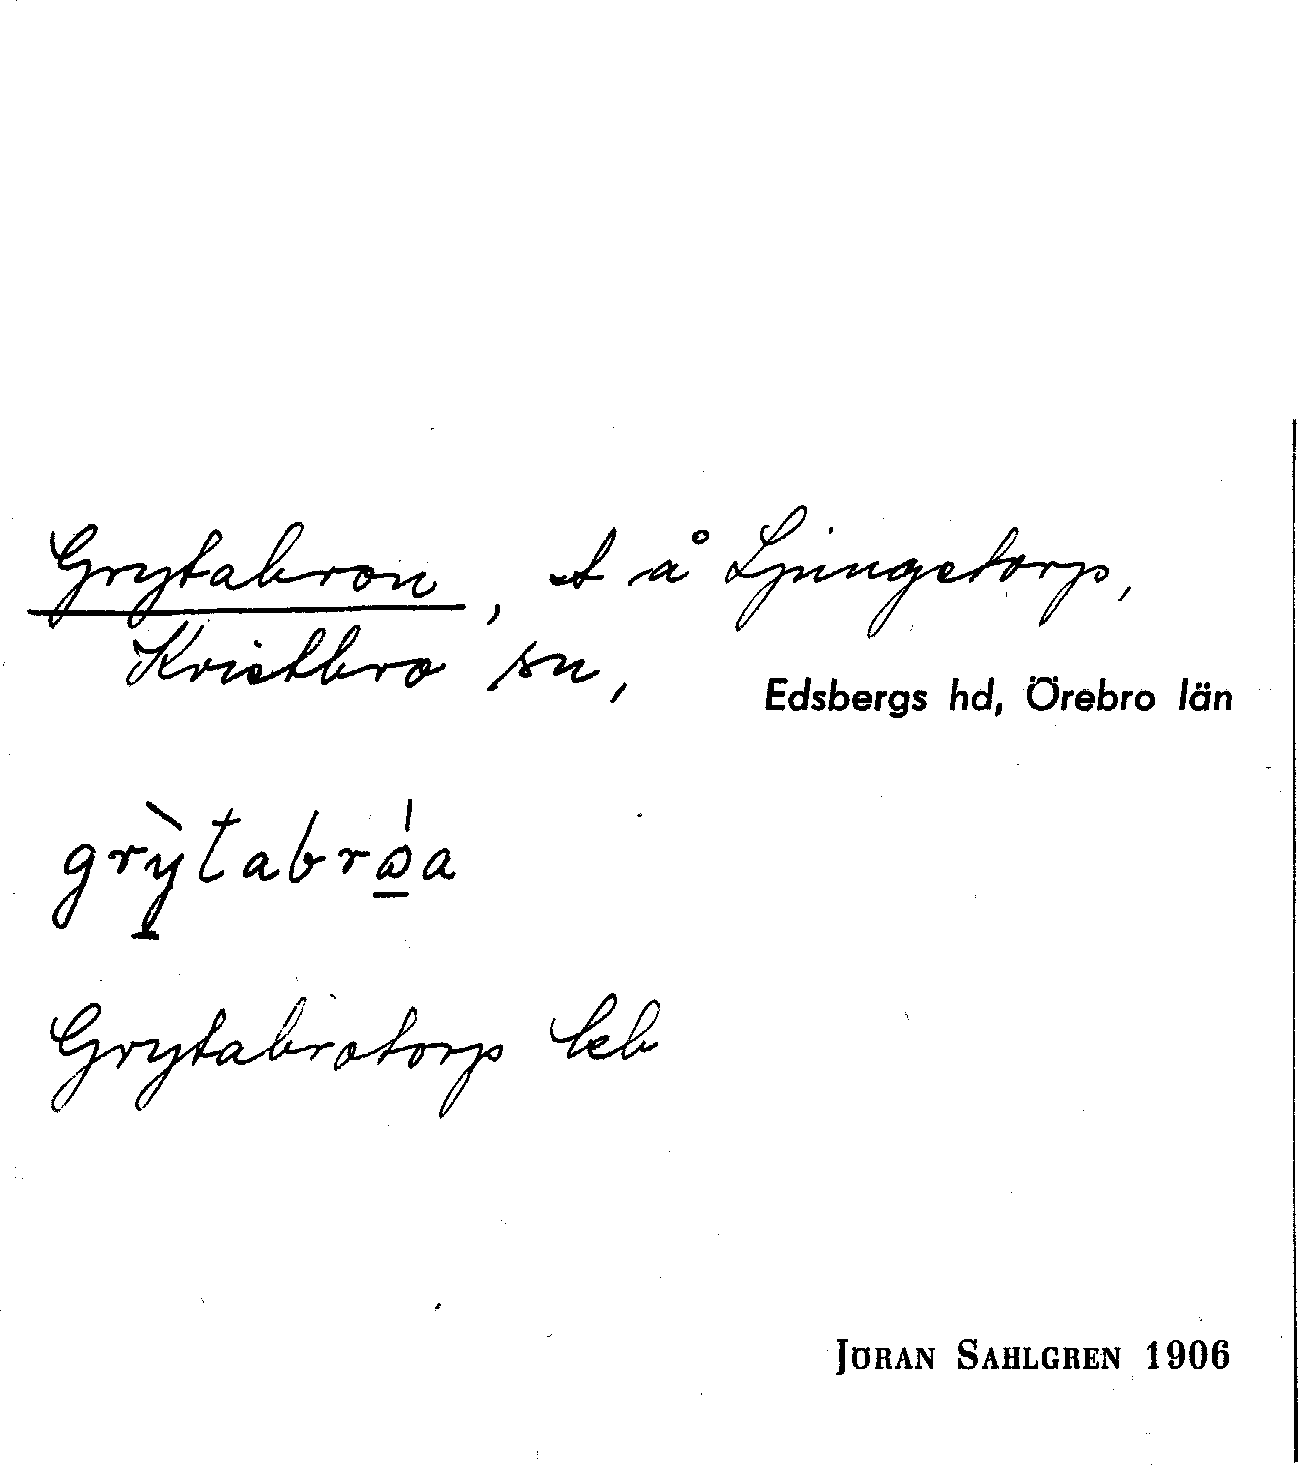 Grytabron, t å Ljungstorp,
Kvistbro sn,
Edsbergs hd, Örebro län
grỳtabrǿa
Grytabrotorp kb
JÖRAN SAHLGREN 1906